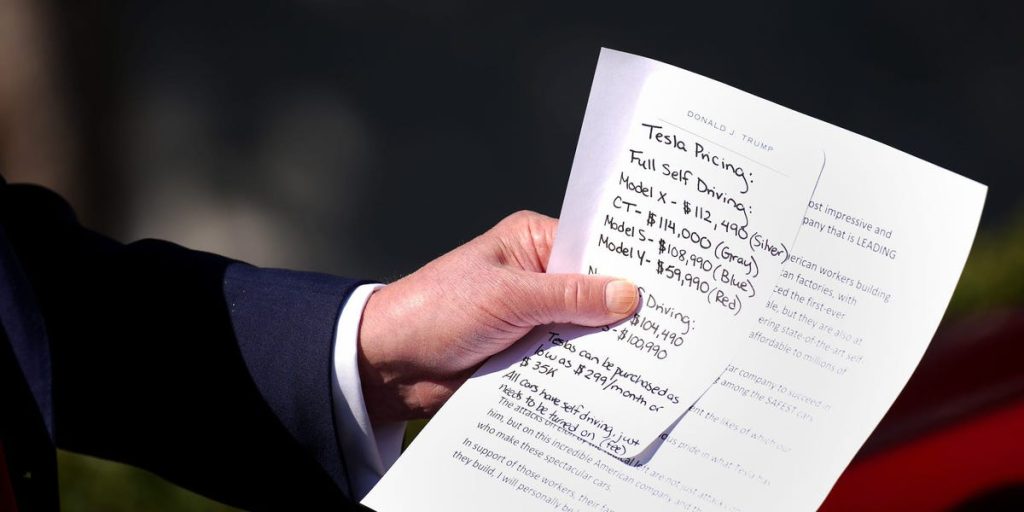 DONALD J. TRUMP
Tesla Pricing:
Full Self Driving:
Model X - $112,490 (Silver)
CT - $114,000 (Gray)
Model S - $108,990 (Blue)
Model Y - $59,990 (Red)
Driving:
$104,490
- $100,990
Teslas can be purchased as
low as $299/month or
$35K
All cars have self driving, just
needs to be turned on (fee)
ost impressive and
pany that is LEADING
merican workers building
can factories, with
ced the first-ever
ale, but they are also at
ering state-of-the-art self
affordable to millions of
ar company to succeed in
among the SAFEST cars
ent the likes of which our
us pride in what Tesla has
The attacks on left are not just attacks
him, but on this incredible American company and the
who make these spectacular cars.
In support of those workers, their fam
they build, I will personally bu